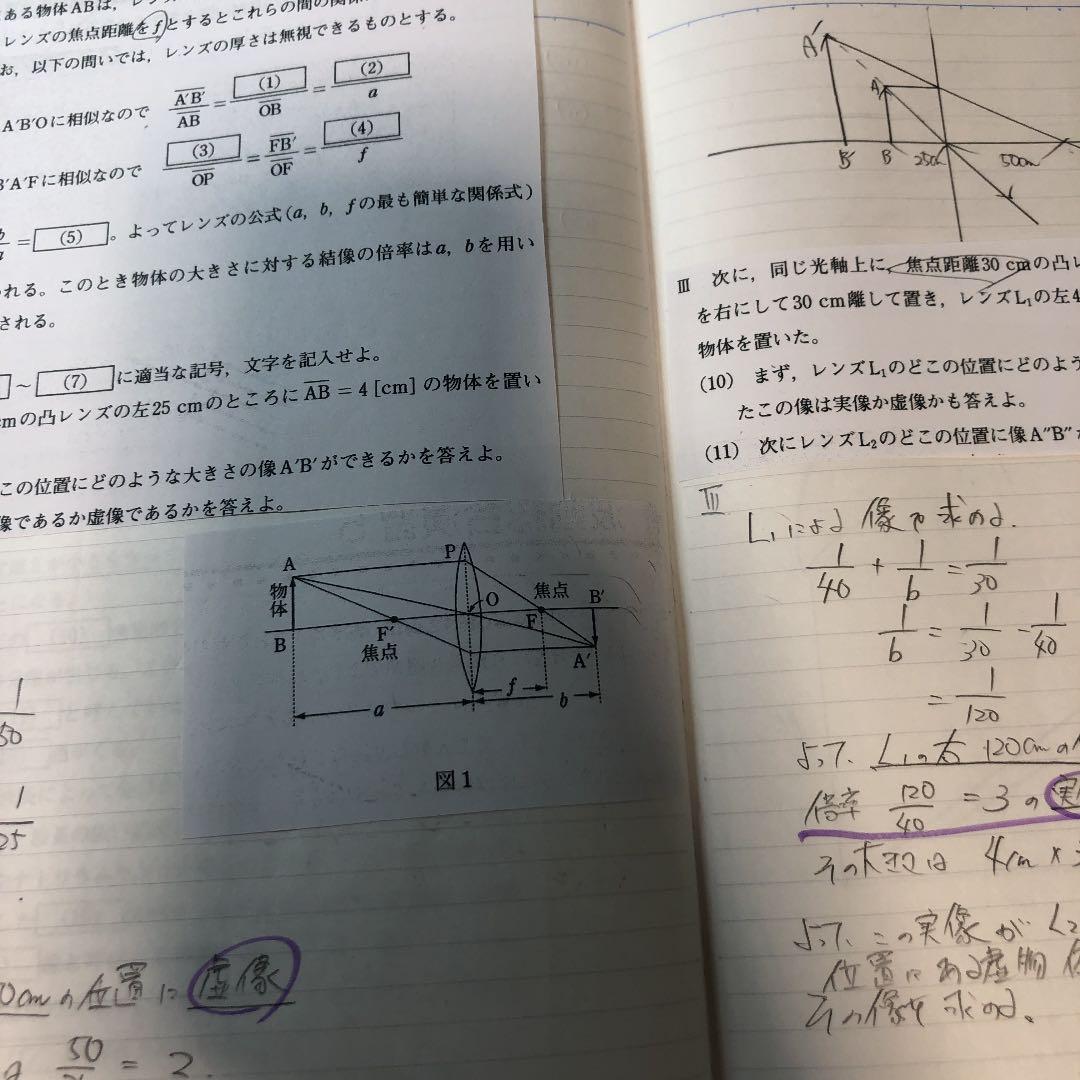 ある物体ABは,
レンズの焦点距離をfとするとこれらの間の関係
お, 以下の問いでは, レンズの厚さは無視できるものとする。
A'B'Oに相似なので A'B'/AB = (1)/OB = (2)/a
B'A'Fに相似なので (3)/OP = FB'/OF = (4)/f
b/a = (5)。よってレンズの公式(a, b, fの最も簡単な関係式)
れる。このとき物体の大きさに対する結像の倍率はa, bを用い
される。
～ (7) に適当な記号, 文字を記入せよ。
cmの凸レンズの左25 cmのところにAB = 4 [cm] の物体を置い
この位置にどのような大きさの像A'B'ができるかを答えよ。
像であるか虚像であるかを答えよ。
A
物体
B
F'
焦点
P
O
焦点
F
B'
A'
a
f
b
図1
1/50
1/25
0cmの位置に虚像
50
= 2.
A'
A
B'
B
25cm
50cm
Ⅲ 次に, 同じ光軸上に, 焦点距離30 cmの凸レ
を右にして30 cm離して置き, レンズL₁の左4
物体を置いた。
(10) まず, レンズL₁のどこの位置にどのよう
たこの像は実像か虚像かも答えよ。
(11) 次にレンズL₂のどこの位置に像A"B"が
Ⅲ
L₁による像を求める.
1/40 + 1/b = 1/30
1/b = 1/30 - 1/40
= 1/120
よって、L₁の右 120cmの
倍率 120/40 = 3 の実
その大きさは 4cm ×
よって、この実像が L₂
位置にある虚物体
その像を求める。